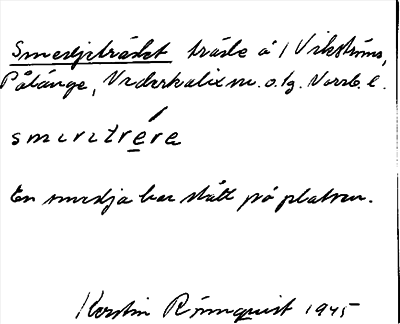 Smedjeträdet träde å 1 Vikströms,
Pålänge, Nederkalix sn. o. tg. Norrb. l.
smiritrére
En smedja har stått på platsen.
Kerstin Rönnquist 1945